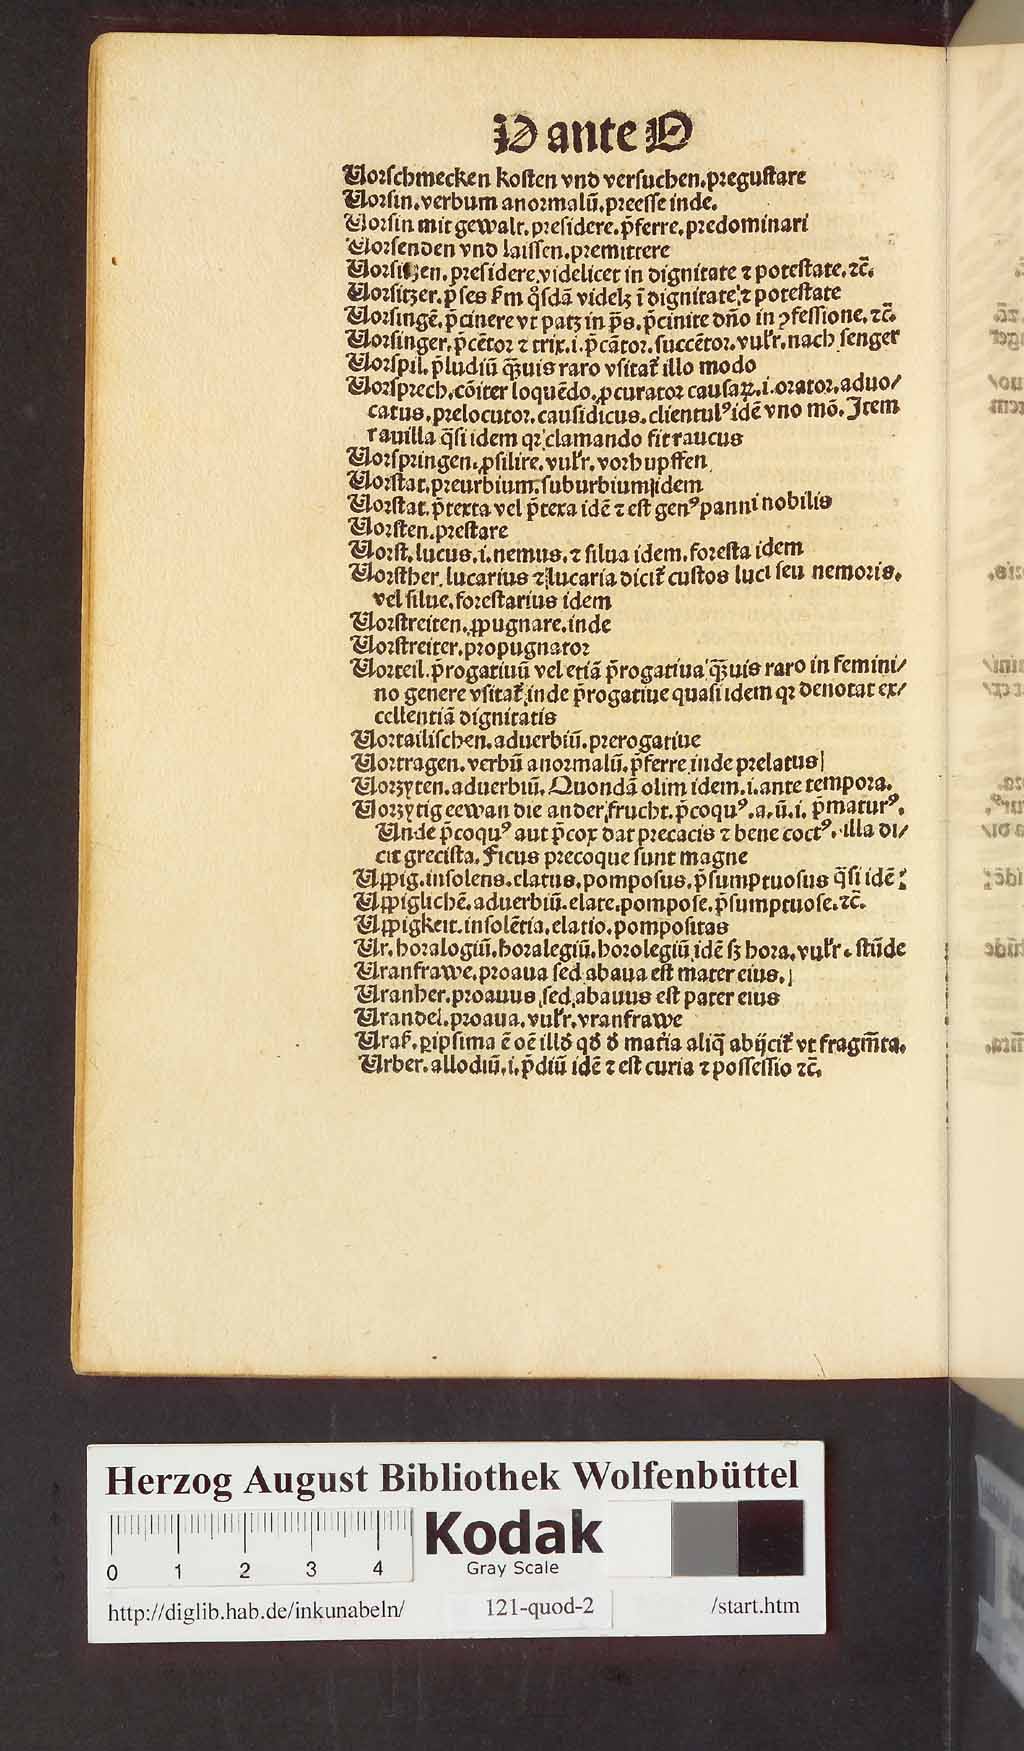 V ante O
Vorschmecken kosten vnd versuchen. pregustare
Vorsin. verbum anormalū. preesse inde.
Vorsin mit gewalt. presidere. p̄ferre. predominari
Vorsenden vnd laissen. premittere
Vorsitzen. presidere videlicet in dignitate ⁊ potestate. ⁊c̄.
Vorsitzer. p̄ses ī dignitate ⁊ potestate
Vorsingē. p̄cinere vt patꝫ in p̄s. p̄cinite dn̄o in ꝯfessione. ⁊c̄.
Vorsinger. p̄cētor ⁊ trix. i. p̄cātor. succētor. vulr̄. nach senger
Vorspil. p̄ludiū q̄uis raro vsitat᷑ illo modo
Vorsprech. cōiter loquēdo. ꝓcurator causaꝝ. i. orator. aduo/
catus. prelocutor. causidicus. clientulꝰ idē vno mō. Item
rauilla q̄si idem qꝛ clamando fit raucus
Vorspringen. ꝓsilire. vulr̄. vorhupffen
Vorstat. preurbium. suburbium idem
Vorstat. p̄texta vel p̄texa idē ⁊ est genꝰ panni nobilis
Vorsten. prestare
Vorst. lucus. i. nemus. ⁊ silua idem. foresta idem
Vorsther. lucarius ⁊ lucaria dicit᷑ custos luci seu nemoris.
vel silue. forestarius idem
Vorstreiten. ꝓpugnare. inde
Vorstreiter. propugnator
Vorteil. p̄rogatiuū vel etiā p̄rogatiua q̄uis raro in femini/
no genere vsitat᷑ inde p̄rogatiue quasi idem qꝛ denotat ex/
cellentiā dignitatis
Vortailischen. aduerbiū. prerogatiue
Vortragen. verbū anormalū. p̄ferre inde prelatus
Vorzyten. aduerbiū. Quondā olim idem. i. ante tempora.
Vorzytig eewan die ander frucht. p̄coquꝰ. a. ū. i. p̄maturꝰ.
Vnde p̄coquꝰ aut p̄cox dat precacis ⁊ bene coctꝰ. illa di/
cit grecista. Ficus precoque sunt magne
Vppig. insolens. elatus. pomposus. p̄sumptuosus q̄si idē
Vppiglichē. aduerbiū. elate. pompose. p̄sumptuose. ⁊c̄.
Vppigkeit. insolētia. elatio. pompositas
Vr. horalogiū. horalegiū. horolegiū idē sꝫ hora. vulr̄. stūde
Vranfrawe. proaua sed abaua est mater eius.
Vranher. proauus sed abauus est pater eius
Vrandel. proaua. vulr̄. vranfrawe
ꝑipsima ē oē aliq̄ abijcit᷑ vt fragm̄ta.
Vrber. allodiū. i. p̄diū idē ⁊ est curia ⁊ possessio ⁊c̄.
Herzog August Bibliothek Wolfenbüttel
0 1 2 3 4
Kodak
Gray Scale
http://diglib.hab.de/inkunabeln/ 121-quod-2 /start.htm